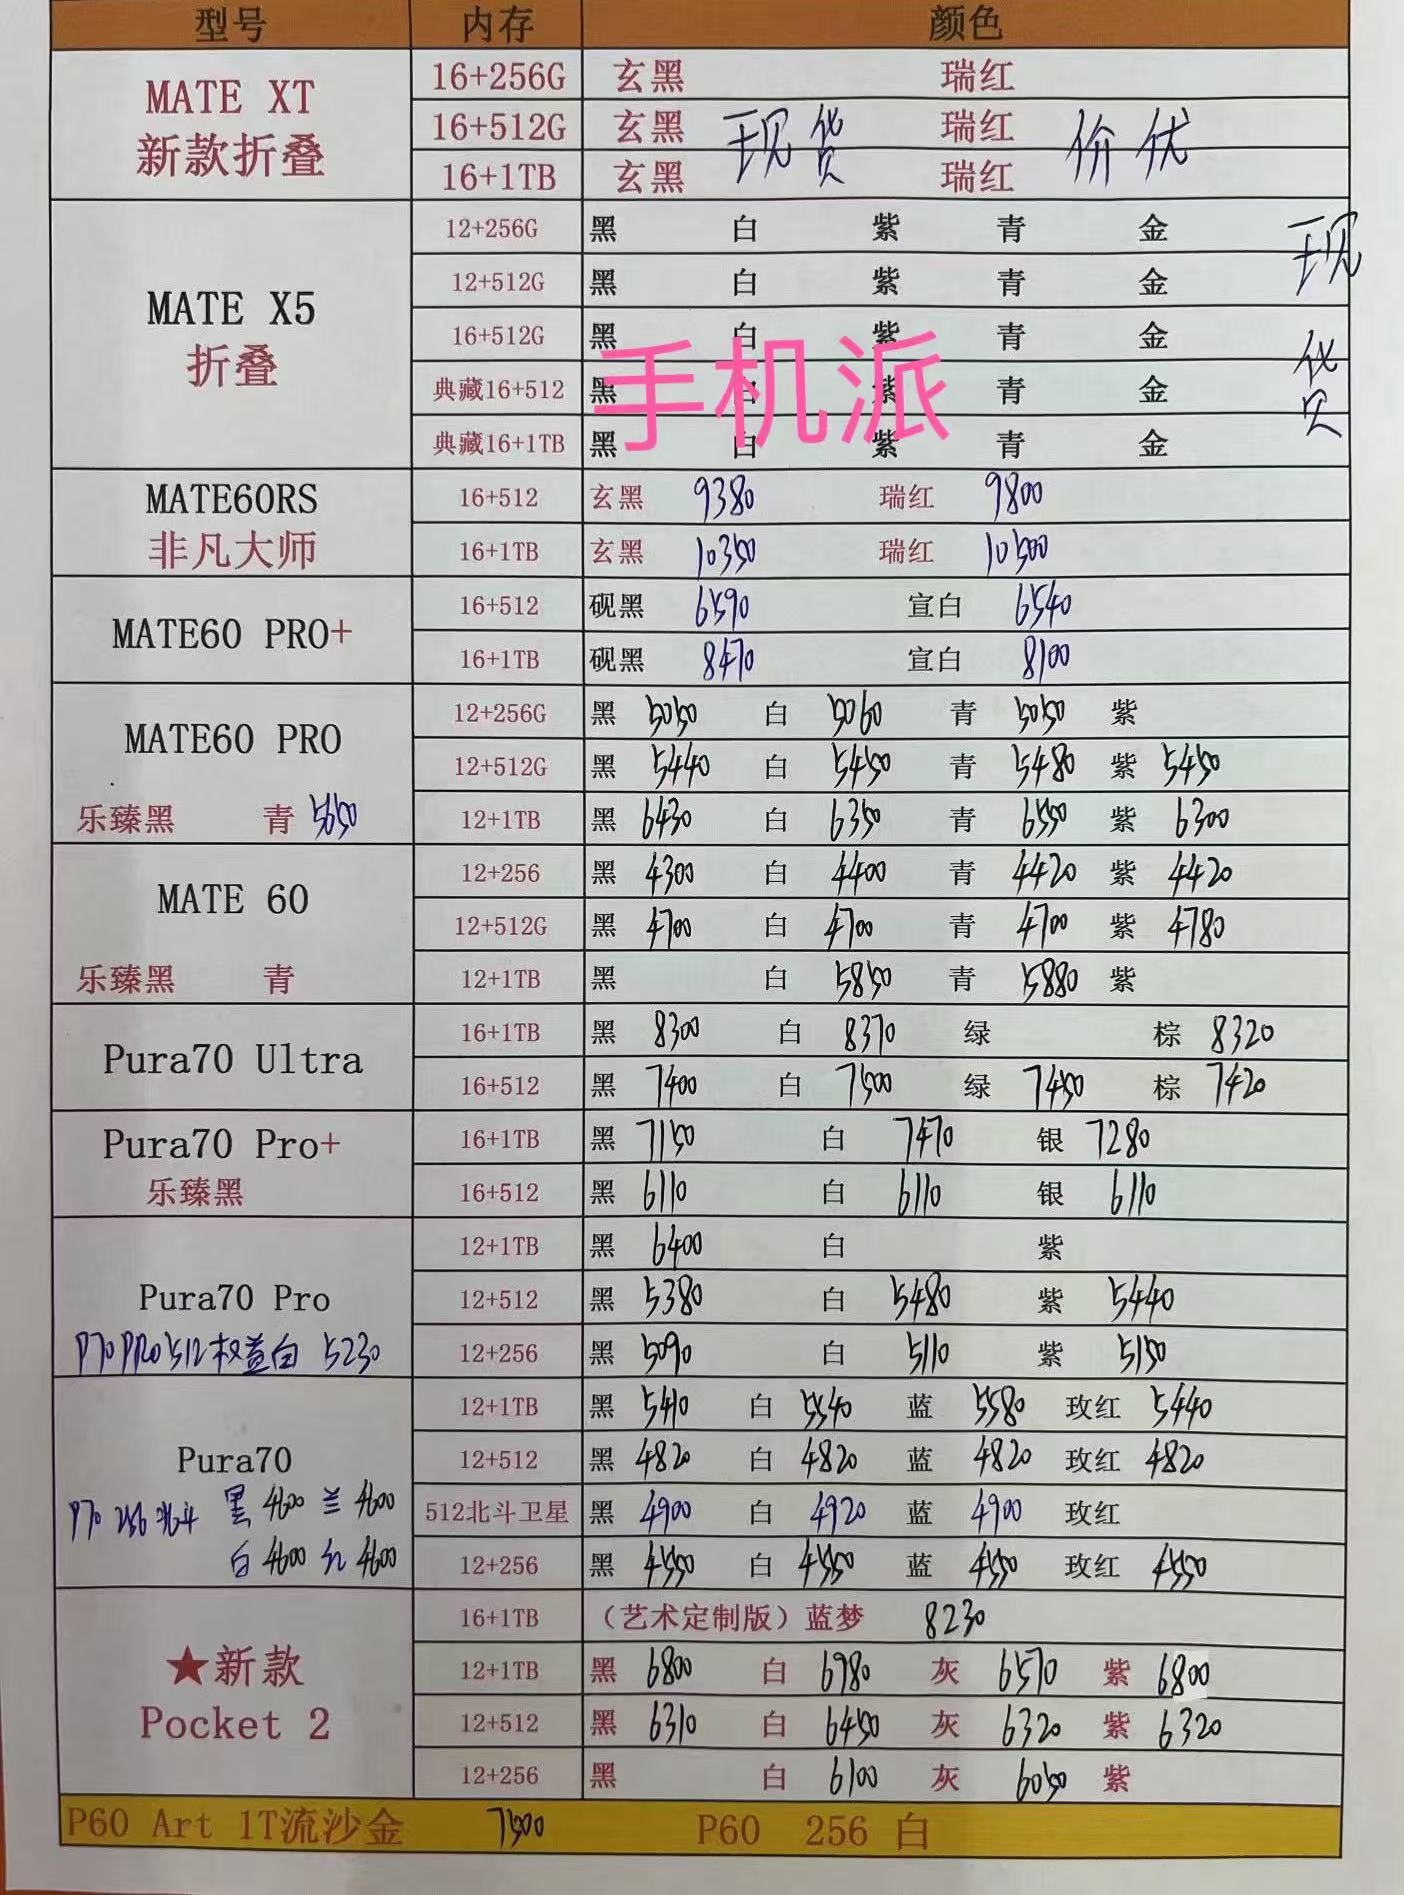 型号 内存 颜色
MATE XT 新款折叠
16+256G 玄黑 瑞红
16+512G 玄黑 现货 瑞红 价优
16+1TB 玄黑 瑞红
MATE X5 折叠 现货
12+256G 黑 白 紫 青 金
12+512G 黑 白 紫 青 金
16+512G 黑 白 紫 青 金
典藏16+512 黑 白 紫 青 金
典藏16+1TB 黑 白 紫 青 金
手机派
MATE60RS 非凡大师
16+512 玄黑 9380 瑞红 9800
16+1TB 玄黑 10350 瑞红 10500
MATE60 PRO+
16+512 砚黑 6590 宣白 6540
16+1TB 砚黑 8470 宣白 8100
MATE60 PRO
12+256G 黑 5050 白 5060 青 5050 紫
12+512G 黑 5440 白 5450 青 5480 紫 5450
乐臻黑 青 5650
12+1TB 黑 6430 白 6350 青 6550 紫 6300
MATE 60
12+256 黑 4300 白 4400 青 4420 紫 4420
12+512G 黑 4700 白 4700 青 4700 紫 4780
乐臻黑 青
12+1TB 黑 白 5850 青 5880 紫
Pura70 Ultra
16+1TB 黑 8300 白 8370 绿 棕 8320
16+512 黑 7400 白 7500 绿 7450 棕 7420
Pura70 Pro+
乐臻黑
16+1TB 黑 7150 白 7470 银 7280
16+512 黑 6110 白 6110 银 6110
Pura70 Pro
12+1TB 黑 6400 白 紫
12+512 黑 5380 白 5480 紫 5440
P70 PRO 512 权益白 5230
12+256 黑 5090 白 5110 紫 5150
Pura70
12+1TB 黑 5410 白 5540 蓝 5580 玫红 5440
12+512 黑 4820 白 4820 蓝 4820 玫红 4820
P70 256 北斗 黑 4600 兰 4600
白 4600 红 4600
512北斗卫星 黑 4900 白 4920 蓝 4900 玫红
12+256 黑 4550 白 4550 蓝 4550 玫红 4550
★新款
Pocket 2
16+1TB （艺术定制版）蓝梦 8230
12+1TB 黑 6800 白 6980 灰 6570 紫 6800
12+512 黑 6310 白 6450 灰 6320 紫 6320
12+256 黑 白 6100 灰 6050 紫
P60 Art 1T流沙金 7500 P60 256 白